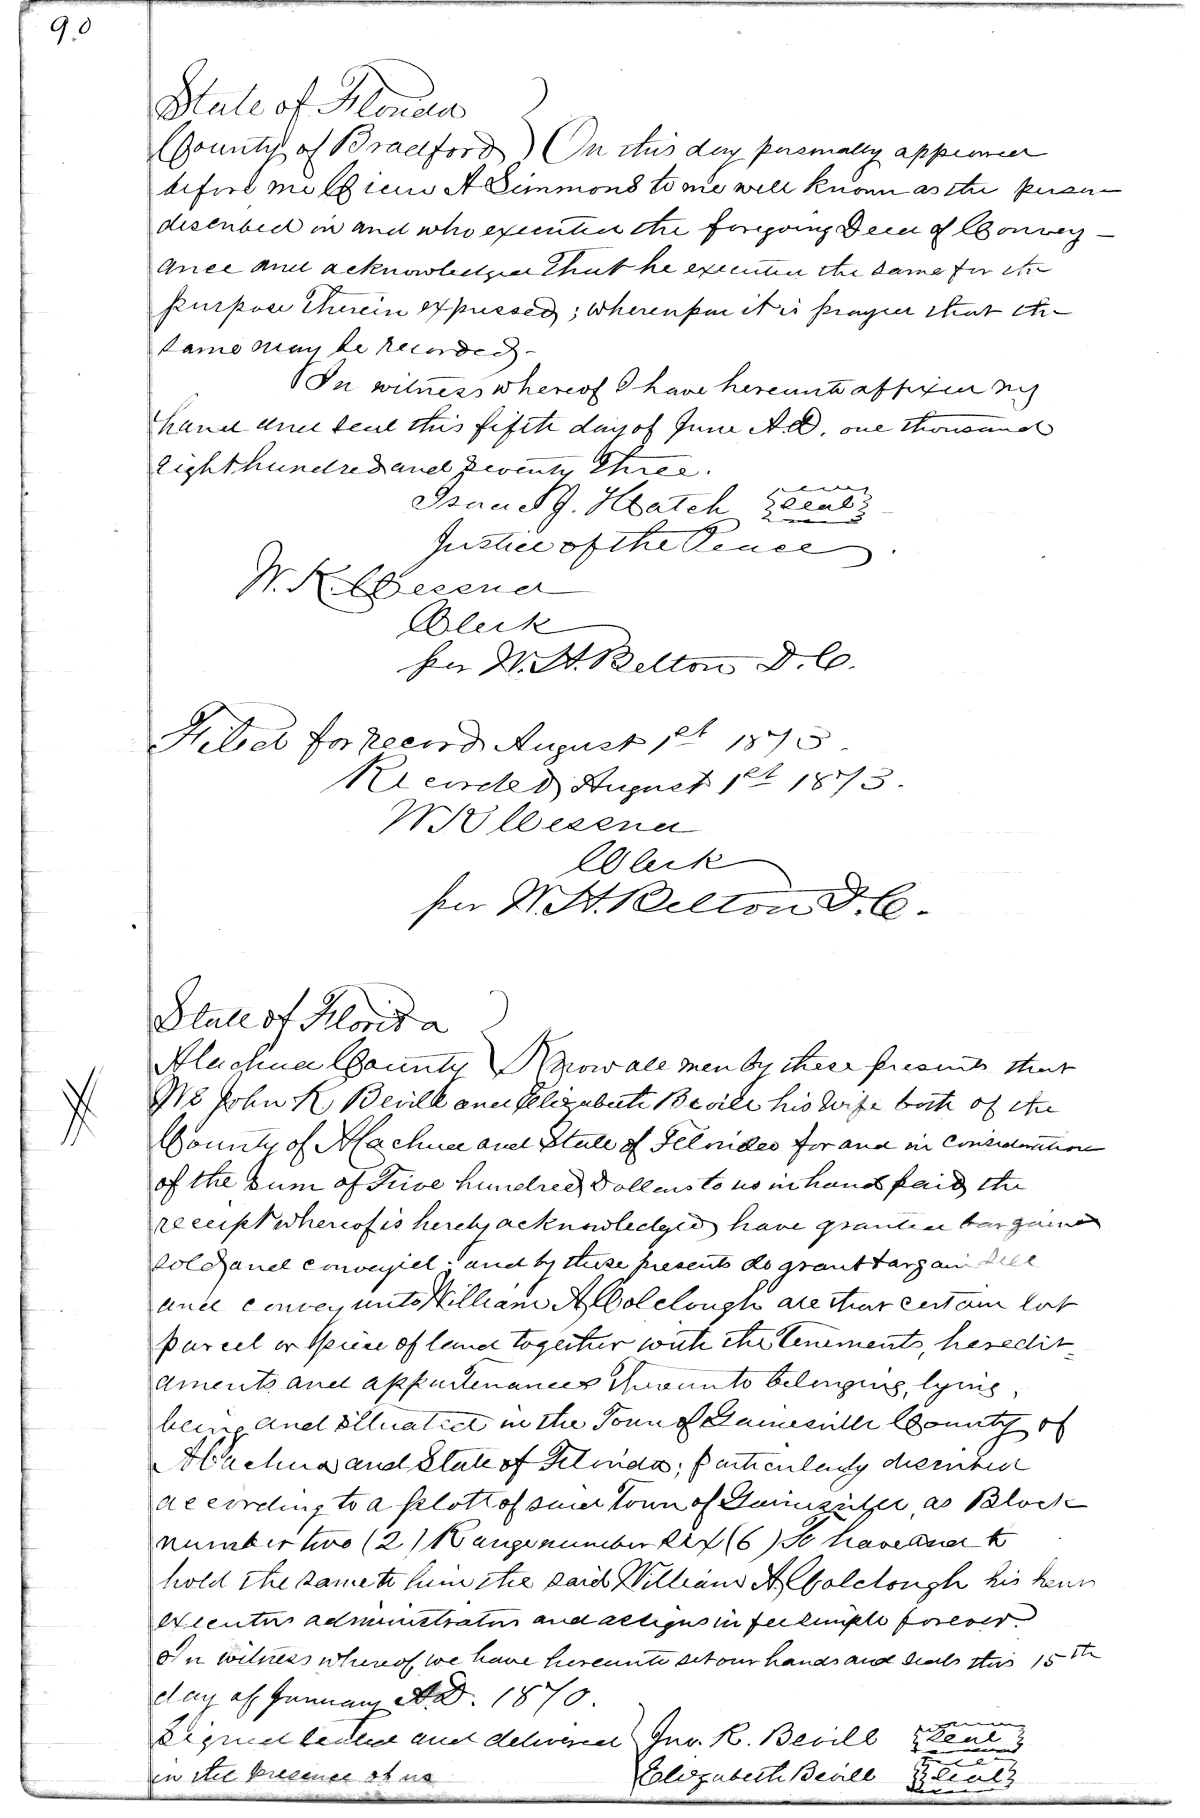 90
State of Florida
County of Bradford } On this day personally appeared
before me A Simmons to me well known as the person
described in and who executed the foregoing Deed of Convey-
ance and acknowledged that he executed the same for the
purpose therein expressed; whereupon it is prayed that the
same may be recorded.
In witness whereof I have hereunto affixed my
hand and seal this fifth day of June A.D. one thousand
eight hundred and seventy three.
Isaac J. Hatch {seal}
Justice of the Peace.
W. K. Cessna
Clerk
per W. H. Belton D. C.
Filed for record August 1st 1873.
Recorded August 1st 1873.
W K Cessna
Clerk
per W. H. Belton D. C.
State of Florida
Alachua County } Know all men by these presents that
We John R Bevill and Elizabeth Bevill his wife both of the
County of Alachua and State of Florida for and in consideration
of the sum of Five hundred Dollars to us in hand paid the
receipt whereof is hereby acknowledged have granted bargained
sold and conveyed; and by these presents do grant bargain sell
and convey unto William A Colclough all that certain lot
parcel or piece of land together with the tenements, heredit-
aments and appurtenances thereunto belonging, lying,
being and situated in the Town of Gainesville County of
Alachua and State of Florida; particularly described
according to a plott of said Town of Gainesville, as Block
number two (2) Range number six (6) To have and to
hold the same to him the said William A Colclough his heirs
executors administrators and assigns in fee simple forever.
In witness whereof, we have hereunto set our hands and seals this 15th
day of January A.D. 1870.
Signed sealed and delivered } Jno. R. Bevill {seal}
in the presence of us Elizabeth Bevill {seal}